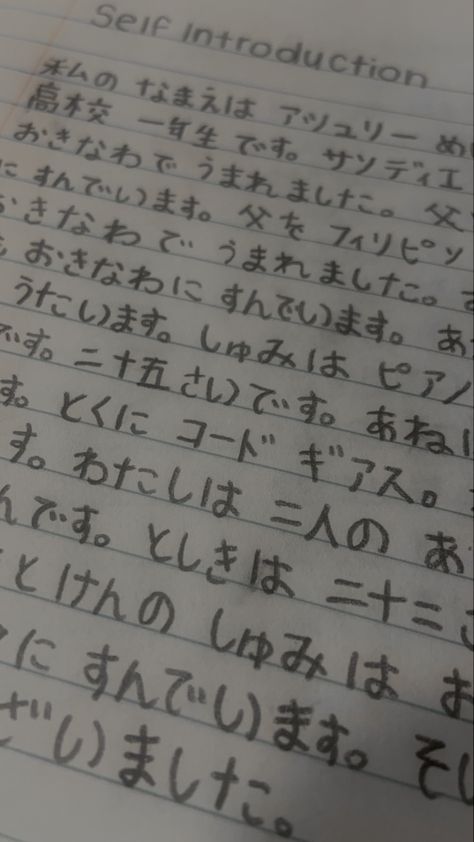 Self Introduction
私の なまえは アシュリー
高校 一年生 です。サンディエ
おきなわで うまれました。父
に すんでいます。父を フィリピン
おきなわで うまれました。
おきなわに すんでいます。あ
うたいます。しゅみは ピアノ
です。二十五さいです。あねは
す。とくに コード ギアス。
す。わたしは 二人の あ
んです。としきは 二十二
とけんの しゅみは お
に すんでいます。そし
ざいました。